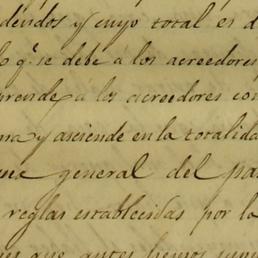 déudos y cuyo total es d
lo q.e se debe á los acreedores
prende á los acreedores con
ma y asciende en la totalida
general del pa
reglas establecidas por la
que antes hemos